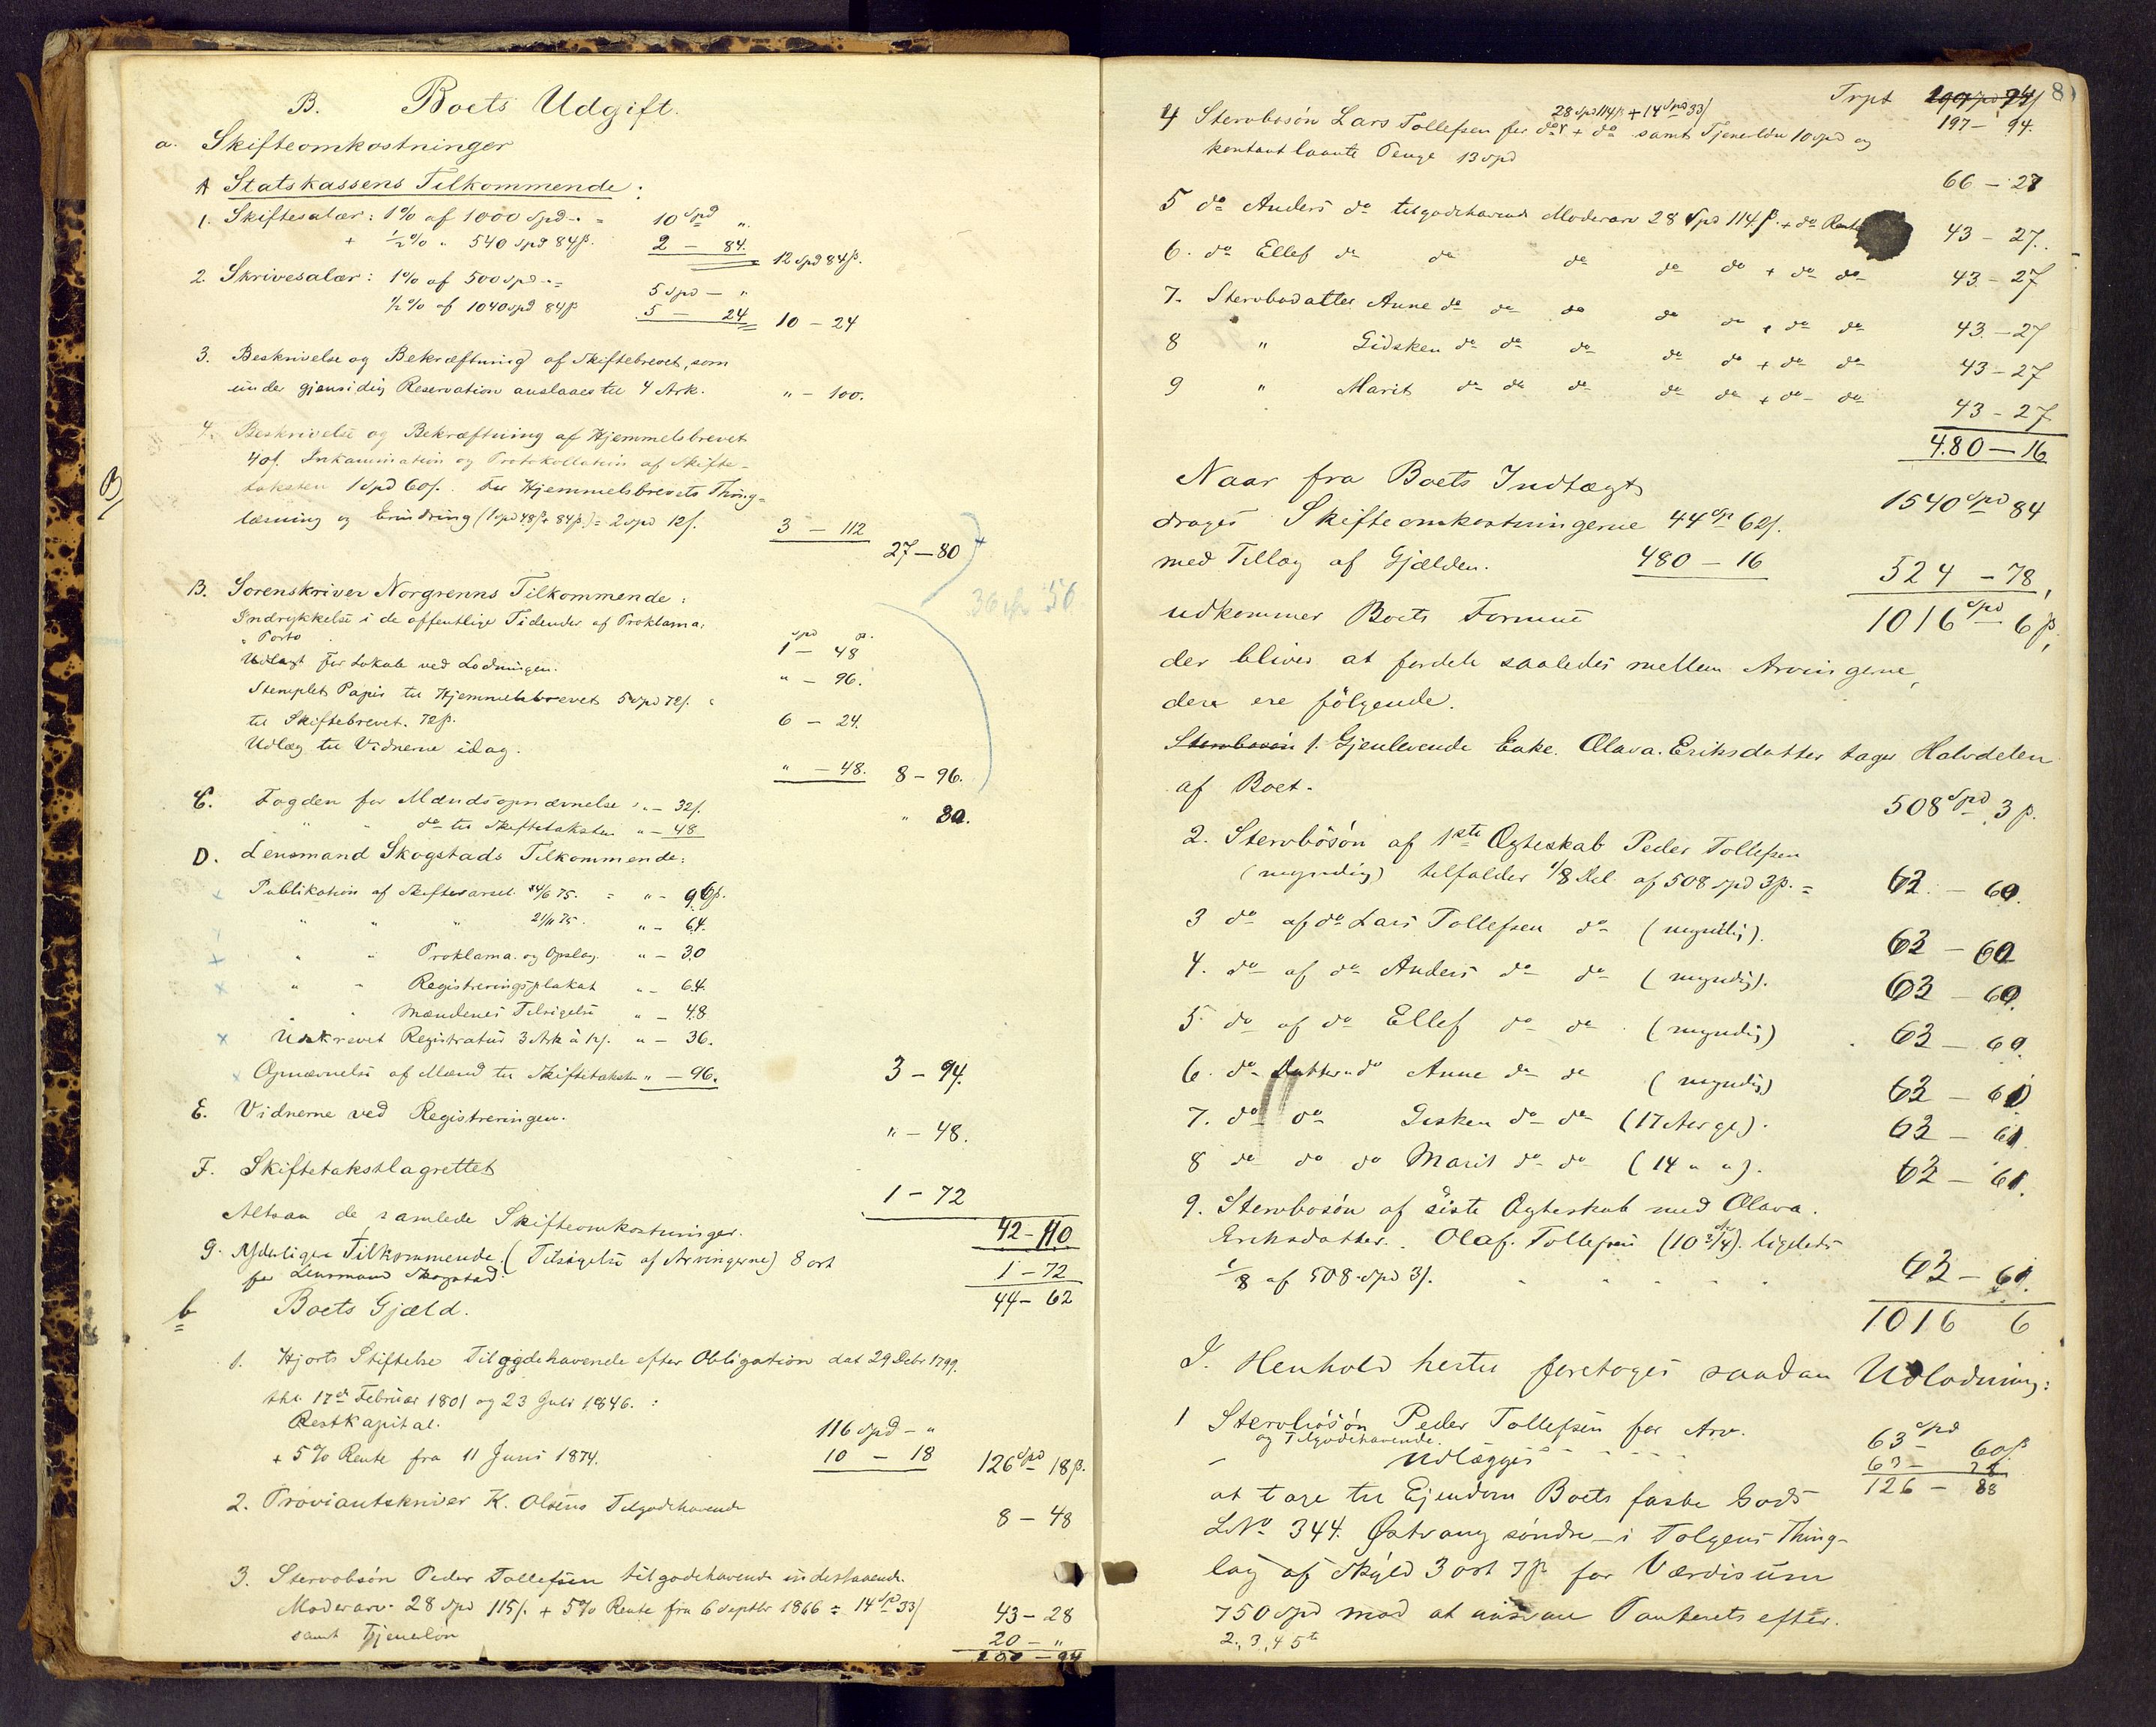 B. Boets Udgift.
a. Skifteomkostninger
A Statskassens Tilkommende:
1. Skiftesalær: 1% af 1000 Spd = 10 Spd "
+ ½% " 540 Spd 84 β. 2 – 84. 12 Spd 84 β.
2. Skrivesalær: 1% af 500 Spd = 5 Spd – "
½% af 1040 Spd 84 β 5 – 24 10 – 24
3. Beskrivelse og Bekræftning af Skiftebrevet, som
under gjensidig Reservation anslaaes til 4 Ark. " – 100.
4. Beskrivelse og Bekræftning af Hjemmelsbrevet
40 β. Inkamination og Protokollation af Skifte-
taksten 1 Spd 60 β. For Hjemmelsbrevets Thing-
læsning og Erindring (1 Spd 48 β + 84 β) = 2 Spd 12 β. 3 – 112
27 – 80
B. Sorenskriver Norgrenns Tilkommende:
Indrykkelse i de offentlige Tidender af Proklama,
" Porto 1 Spd – 48 β.
Udlagt for Lokale ved Lodningen. " – 96.
Stemplet Papir til Hjemmelsbrevet 5 Spd 72 β.
til Skiftebrevet. 72 β. 6 – 24.
Udlæg til Vidnerne idag. " – 48. 8 – 96.
C. Fogden for Mændsopnævnelse " – 32 β.
" " do til Skiftetaksten " – 48 " 80.
D. Lensmand Skogstads Tilkommende:
Publikation af Skiftevarsel 24/6 75. = " – 96 β.
" " " 21/11 75. " – 64.
" " Proklama og Opslag " – 30
" " Registreringsplakat " – 64.
" " Mændenes Tilsigelse " – 48
Udskrevet Registratur 3 Ark à 12 β. " – 36.
Opnævnelse af Mænd til Skiftetaksten " – 96. 3 – 94.
E. Vidnerne ved Registreringen. " – 48.
F. Skiftetakstlagrettet 1 – 72
Altsaa de samlede Skifteomkostninger. 42 – 110
G. Yderligere Tilkommende (Tilsigelse af Arvingerne) 8 ort
for Lensmand Skogstad. 1 – 72
44 – 62
b Boets Gjæld.
1. Hjorts Stiftelse Tilgodehavende efter Obligation dat 29 Debr 1799.
thl. 17de Februar 1801 og 23 Juli 1846. :
Restkapital. 116 Spd – "
+ 5% Rente fra 11 Juni 1874. 10 – 18 126 Spd 18 β.
2. Proviantskriver K. Olsens Tilgodehavende 8 – 48
3. Stervbosön Peder Tollefsen tilgodehavende indestaaende
Moderarv 28 Spd 115 β. + 5% Rente fra 6 Septbr 1866 = 14 Spd 33 β 43 – 28
samt Tjenerlön 20 – "
Trpt 197 – 94.
28 Spd 114 β + 14 Spd 33 β
4 Stervbosön Lars Tollefsen for do + do samt Tjenerlön 10 Spd og
kontant laante Penge 13 Spd 66 – 27
5 do Anders do tilgodehavende Moderarv 28 Spd 114 β. + do Rente 43 – 27.
6. do Ellef do do do do do + do do 43 – 27
7. Stervbodatter Anne do do do do do + do do 43 – 27
8 " Gidsken do do do do do + do do 43 – 27
9 " Marit do do do do do + do do 43 – 27
480 – 16
Naar fra Boets Indtægt 1540 Spd 84
drages Skifteomkostningerne 44 Sp 62 β.
med Tillæg af Gjælden. 480 – 16 524 – 78,
udkommer Boets Formue 1016 Spd 6 β,
der bliver at fordele saaledes mellem Arvingerne,
der ere følgende.
Stervbosön 1. Gjenlevende Enke Olava Eriksdatter tager Halvdelen
af Boet. 508 Spd 3 β.
2. Stervbösön af 1ste Ægteskab Peder Tollefsen
(myndig) tilfalder 1/8 Del af 508 Spd 3 β. = 63 – 60.
3 do af do Lars Tollefsen do (myndig). 63 – 60
4. do af do Anders do do (myndig). 63 – 60.
5 do af do Ellef do do (myndig) 63 – 60.
6. do Datter do Anne do do (myndig) 63 – 61
7. do do Gisken do do (17 Aar gl). 63 – 61
8 do do do Marit do do (14 " "). 63 – 61.
9. Stervbosön af sidste Ægteskab med Olava
Eriksdatter. Olaf Tollefsen (10 3/4). ligeledes
1/8 af 508 Spd 3 β. 63 – 61.
1016 6
I. Henhold hertil foretoges saadan Udlodning:
1 Stervbösön Peder Tollefsen for Arv. 63 Spd 60 β
og Tilgodehavende. 63 – 28
Udlægges 126 – 88
at tage til Ejendom Boets faste Gods
LNo 344. Østvang söndre i Tolgens Thing-
lag af Skyld 3 ort 7 β for Værdisum
750 Spd mod at ansvare Panterets efter.
2., 3., 4 5te